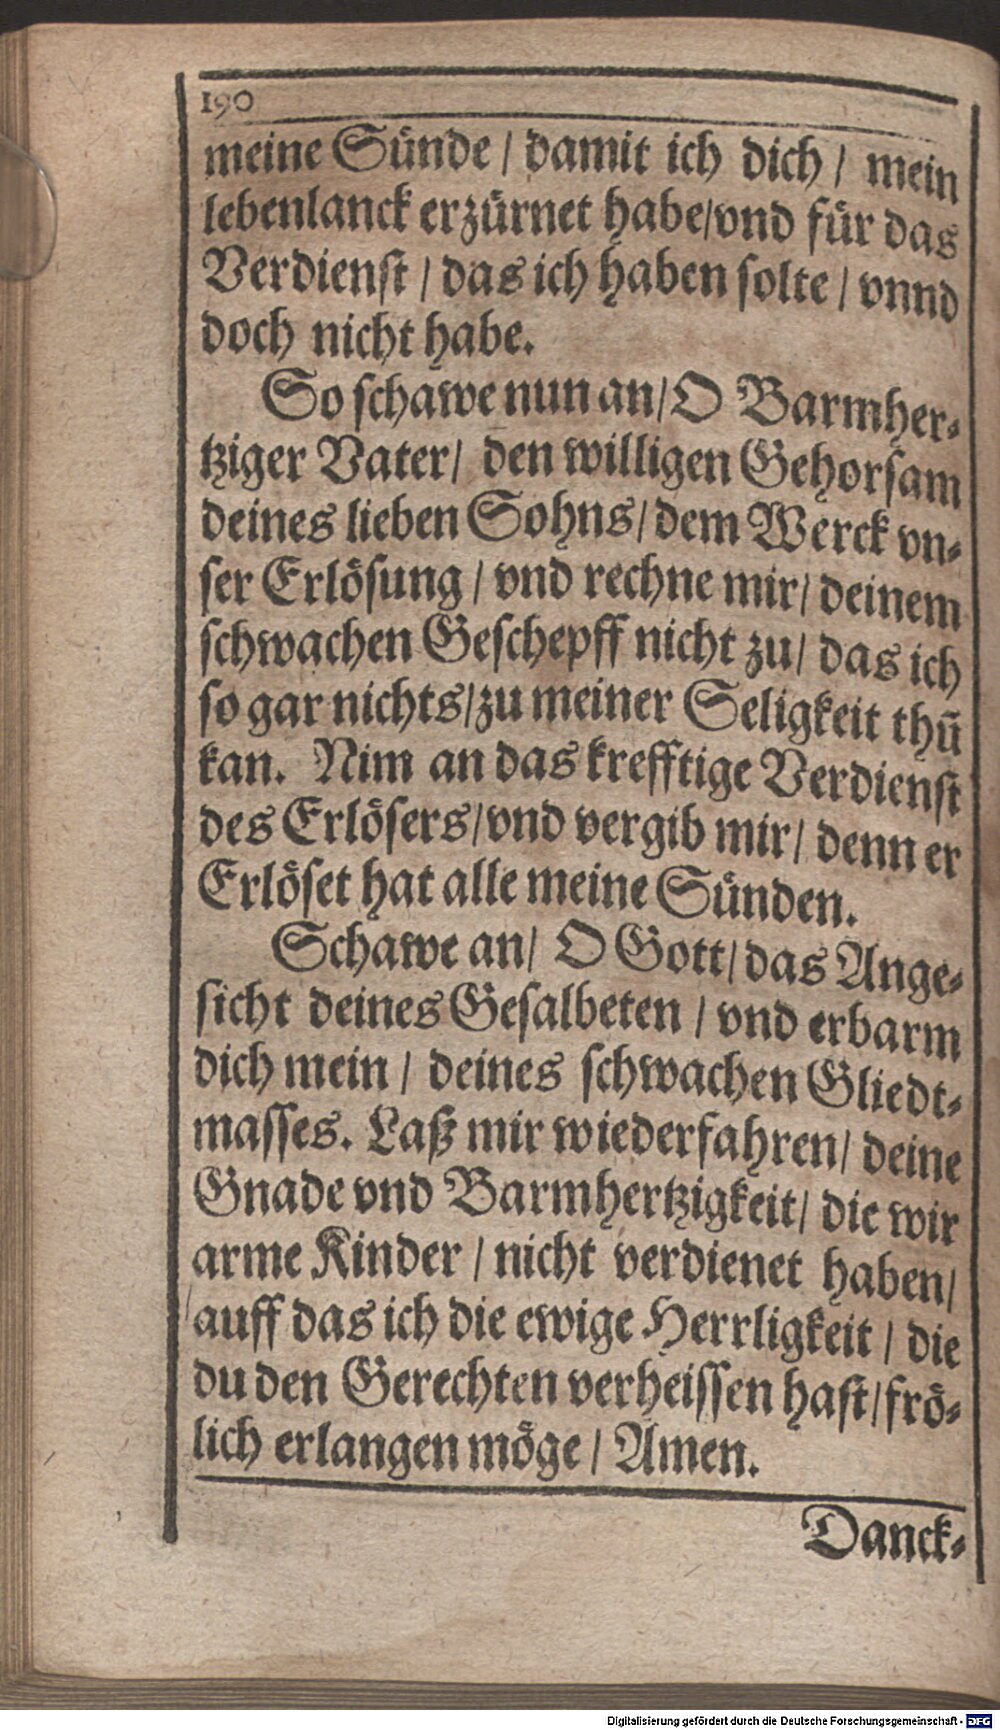 190
meine Sünde / damit ich dich / mein
lebenlanck erzürnet habe/vnd für das
Verdienst / das ich haben solte / vnnd
doch nicht habe.
So schawe nun an/O Barmher-
tziger Vater/ den willigen Gehorsam
deines lieben Sohns/dem Werck vn-
ser Erlösung / vnd rechne mir/ deinem
schwachen Geschepff nicht zu/ das ich
so gar nichts/zu meiner Seligkeit thū
kan. Nim an das krefftige Verdienst
des Erlösers/vnd vergib mir/ denn er
Erlöset hat alle meine Sünden.
Schawe an/ O Gott/das Ange-
sicht deines Gesalbeten / vnd erbarm
dich mein / deines schwachen Gliedt-
masses. Laß mir wiederfahren/ deine
Gnade vnd Barmhertzigkeit/ die wir
arme Kinder / nicht verdienet haben/
auff das ich die ewige Herrligkeit / die
du den Gerechten verheissen hast/frö-
lich erlangen möge / Amen.
Danck-
Digitalisierung gefördert durch die Deutsche Forschungsgemeinschaft - DFG